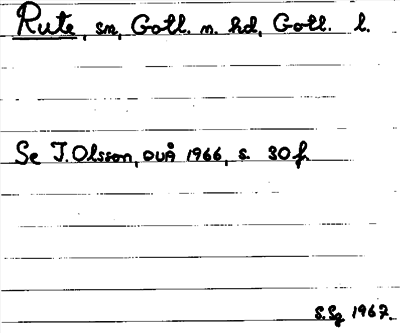 Rute, sn, Gotl. n. hd, Gotl. l.
Se I. Olsson, OUÅ 1966, s. 30 f.
S.Sg 1967.